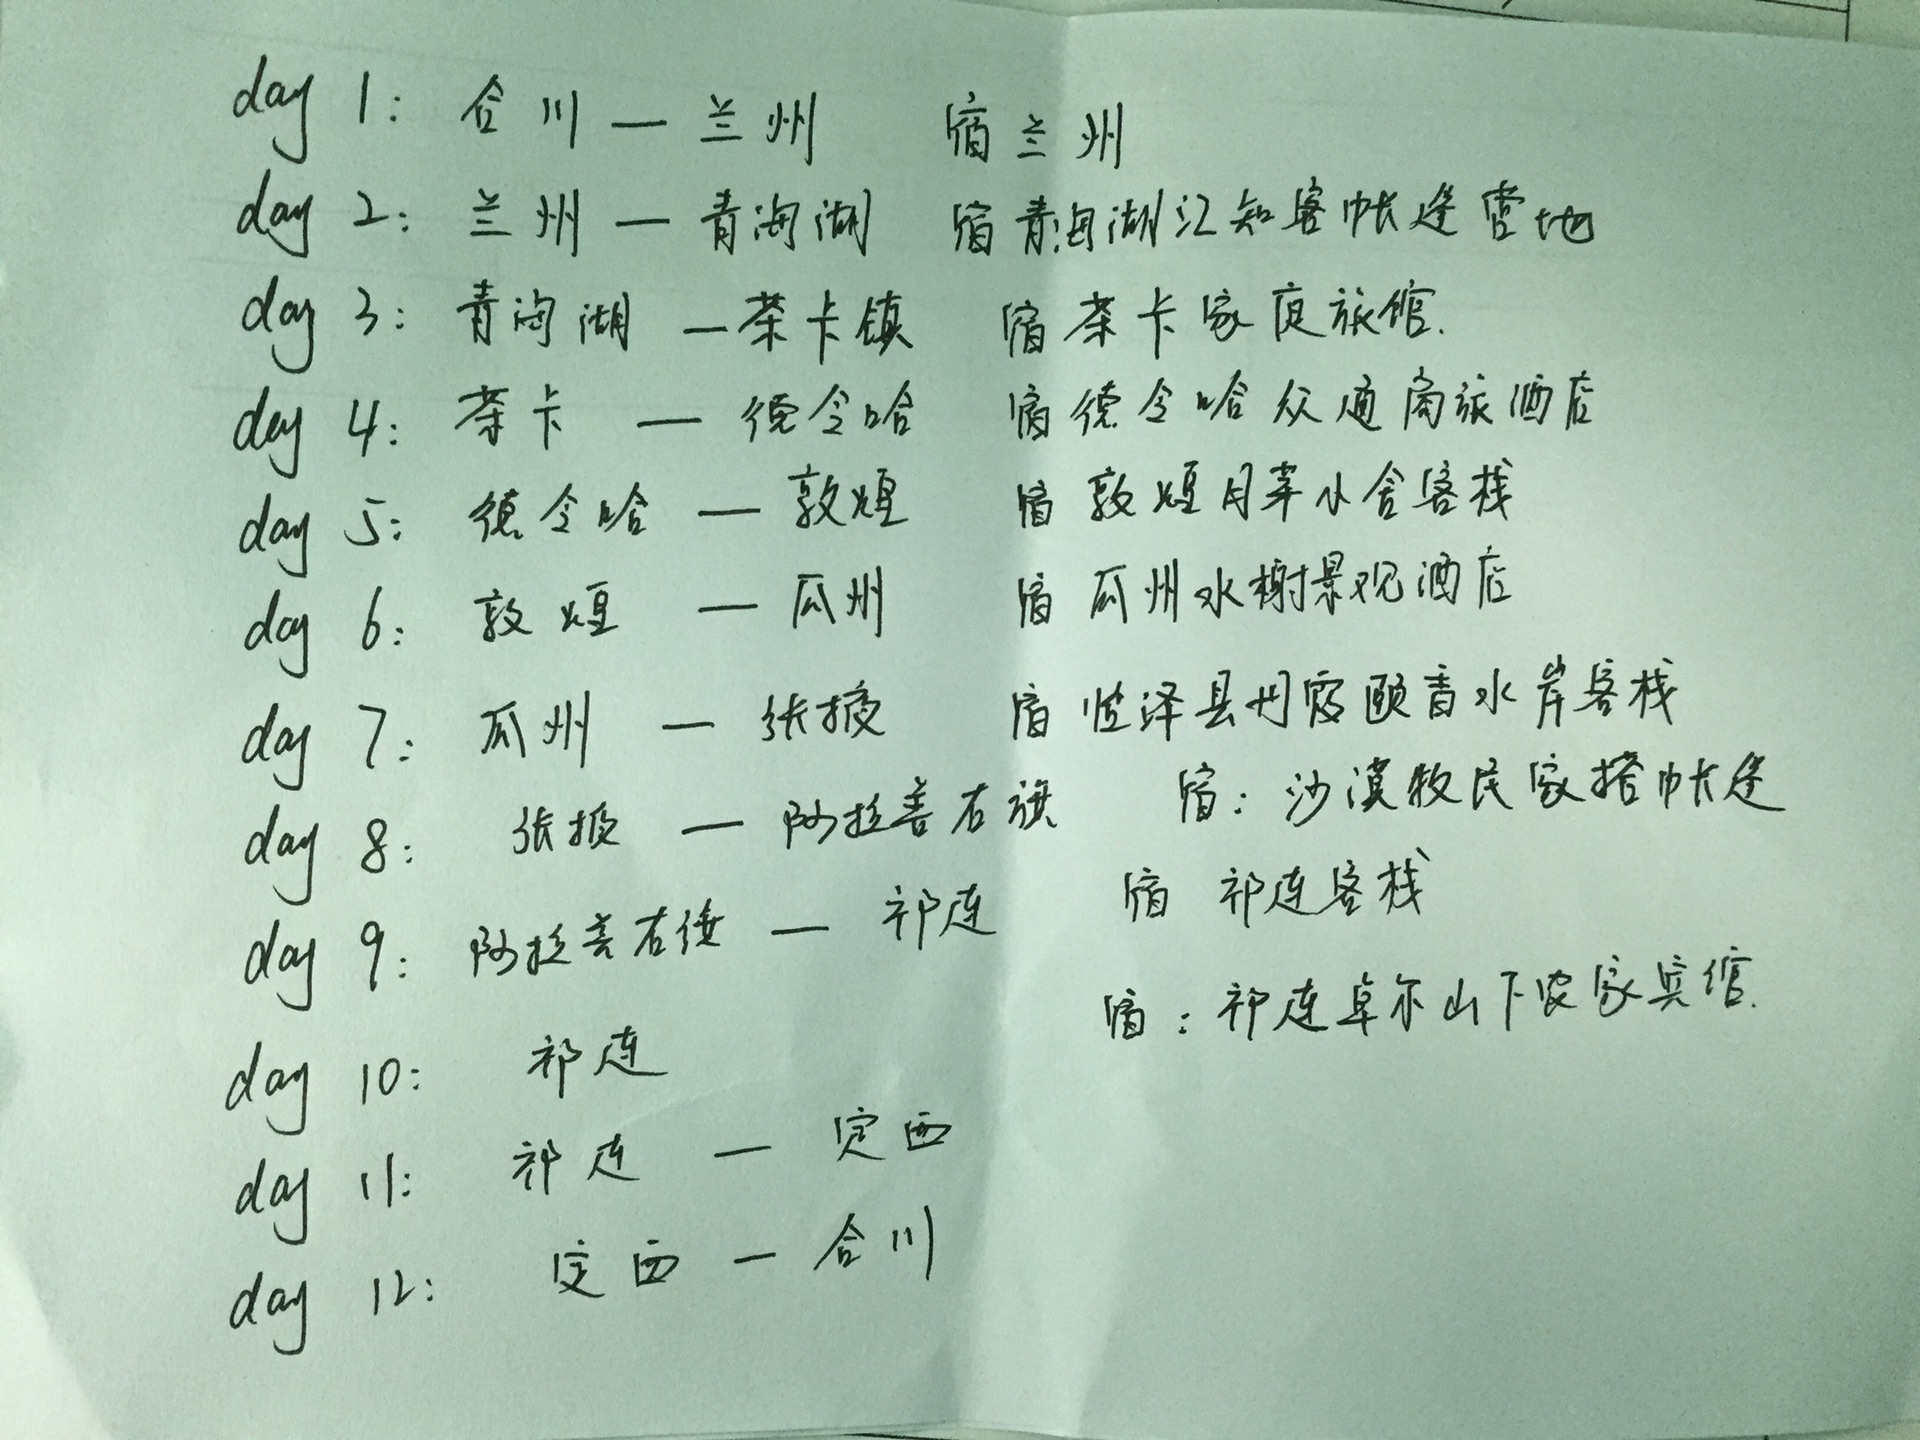 day 1: 合川 — 兰州 宿兰州
day 2: 兰州 — 青海湖 宿青海湖江知客帐逢营地
day 3: 青海湖 — 茶卡镇 宿茶卡家庭旅馆.
day 4: 茶卡 — 德令哈 宿德令哈众通商旅酒店
day 5: 德令哈 — 敦煌 宿敦煌月芽小舍客栈
day 6: 敦煌 — 瓜州 宿瓜州水榭景观酒店
day 7: 瓜州 — 张掖 宿临泽县丹霞颐香水岸客栈
day 8: 张掖 — 阿拉善右旗 宿: 沙漠牧民家搭帐逢
day 9: 阿拉善右旗 — 祁连 宿 祁连客栈
day 10: 祁连 宿: 祁连卓尔山下农家宾馆.
day 11: 祁连 — 定西
day 12: 定西 — 合川